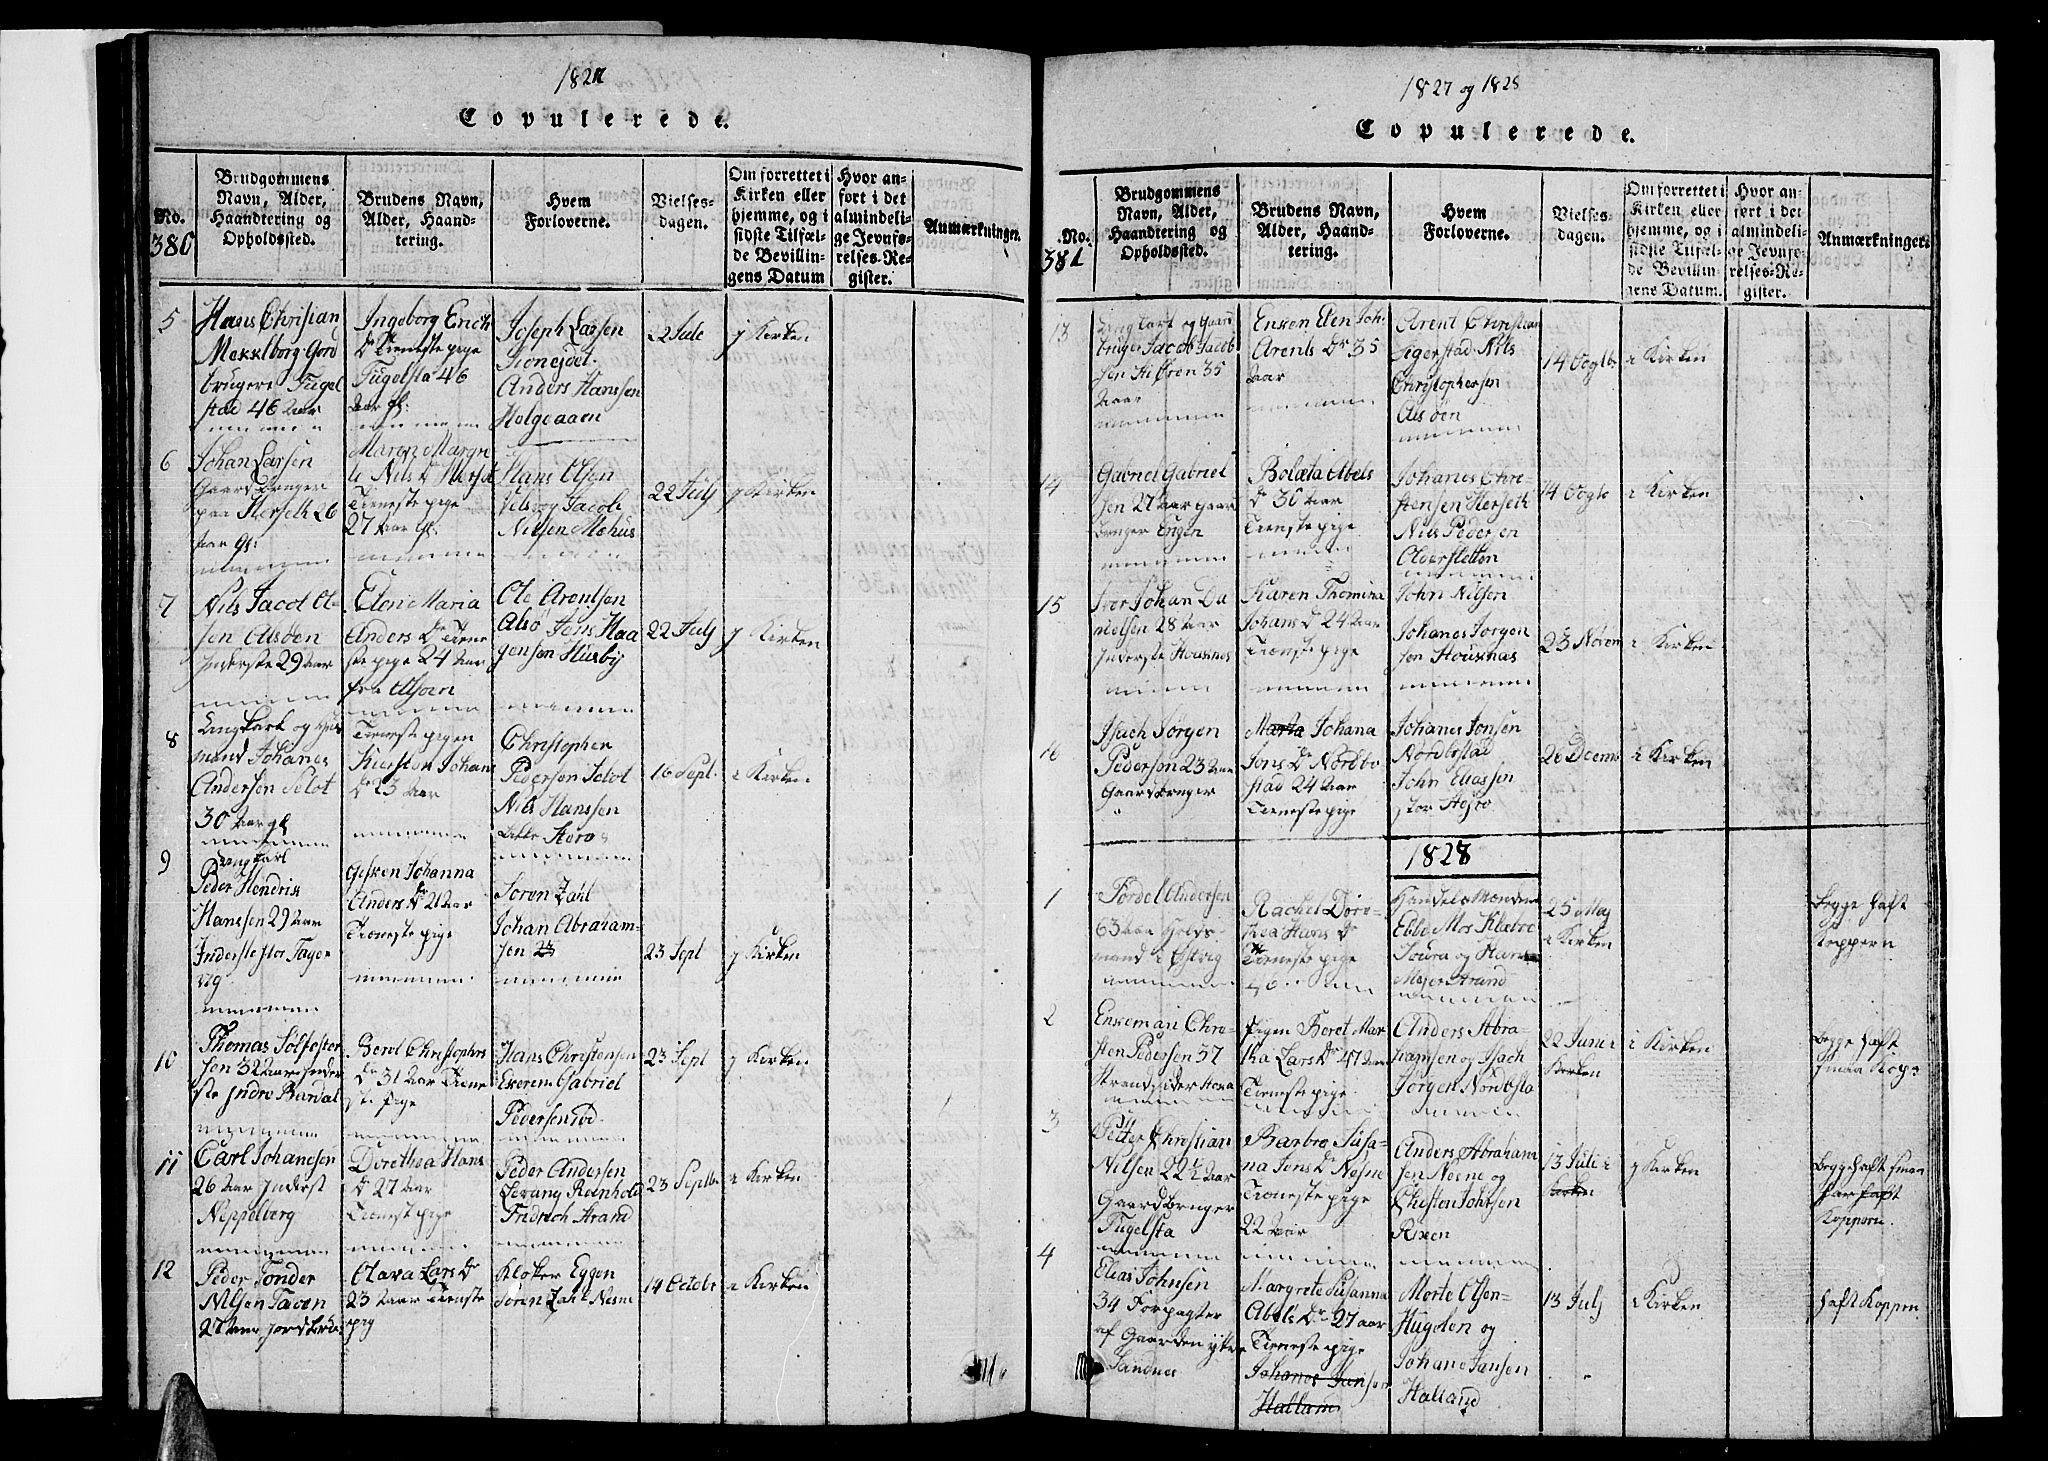 1827
Copulerede.
No.
380
Brudgommens
Navn, Alder,
Haandtering og
Opholdssted.
Brudens Navn,
Alder, Haand-
tering.
Hvem
Forloverne.
Vielses-
dagen.
Om forrettet i
Kirken eller
hjemme, og i
sidste Tilfæl-
de Bevillin-
gens Datum
Hvor an-
ført i det
almindeli-
ge Jevnfø-
relses-Re-
gister.
Anmærkninger.
5
Hans Christian
Mekelborg Gord
bruger Tugel
stad 46 Aar
Ingeborg Erich
Dr Tieneste pige
Tugelsta 46
Aar gl:
Joseph Larsen
Anders Hanssen
Holgeaaen
22 Jule
j Kirken
6
Johan Larsen
Gaardbruger
paa Herseth 26
Aar gl:
Maren Margre
te Nils Dr Herset
Tieneste pige
27 Aar gl:
Hans Olsen
Velsvog Jacob
Nilsen Mehus
22 July
j Kirken
7
Nils Jacob Ol-
sen Alsøen
Inderste 29 Aar
Elen Maria
Anders Dr Tiene
ste pige 24 Aar
fra Alsøen
Ole Arentsen
Alsø Jens Haa
gensen Husby
22 July
j Kirken
8
Ungkarl og Huus
mand Johanes
Andersen Selot
30 Aar gl
Tieneste pigen
Kiersten Johans
Dr 23 Aar
Christopher
Pedersen Selot
Nils Hanssen
Lille Herø
16 Sept.
i Kirken
9
Ungkarl
Peder Hendrik
Hanssen 29 Aar
Inderste stor Tager
vig
Gesken Johanna
Anders Dr 21 Aar
Tieneste pige
Soren Zahl
Johan Abraham-
sen
23 Sept
j Kirken
10
Thomas Sølfester
sen 32 Aar Inder
ste Indre Bardal
Berel Christophers
Dr 31 Aar Tiene
ste pige
Hans Christensen
Gabriel
Pedersen
23 Sept
j Kirken
11
Carl Johanesen
26 Aar Inderst
Neppelberg
Dorethea Hans
Dr 27 Aar
Tieneste pige
Peder Andersen
Levang Reinhold
Fridrich Strand
23 Septbr
i Kirken
12
Peder Tønder
Nilsen
27 Aar Jordbru
Clara Lars Dr
23 Aar Tieneste
pig
Kloker Eggen
Soren Zahl Nesne
14 Octobr
i Kirken
1827 og 1828
Copulerede.
No.
381
Brudgommens
Navn, Alder,
Haandtering og
Opholdssted.
Brudens Navn,
Alder, Haand-
tering.
Hvem
Forloverne.
Vielses-
dagen.
Om forrettet i
Kirken eller
hjemme, og i
sidste Tilfæl-
de Bevillin-
gens Datum.
Hvor an-
ført i det
almindeli-
ge Jevnfø-
relses-Re-
gister.
Anmærkninger.
13
Ungkarl og Gaard
bruger Jacob Jacob
sen 35
Aar
Enken Elen Joh-
Arents Dr 35
Aar
Arent Christian
Segerstad Nils
Christophersen
Alsøen
14
i Kirken
14
Gabriel Gabriel
sen 27 Aar gaard
bruger Engen
Bolæta Abels
Dr 30 Aar
Tieneste pige
Johanes Chri
stensen Herseth
Nils Pedersen
Oldersletten
14
i Kirken
15
Iver Johan Da
nielsen 28 Aar
Inderste Housnes
Karen Thomina
Johans Dr 24 Aar
Tieneste pige
John Nilsen
Johanes Jørgen
sen Housnes
23 Novem
i Kirken
16
Isach Jørgen
Pedersen 23 Aar
Gaardbruger
Maria Johana
Jons Dr Nordbo
stad 24 Aar
Tieneste pige
Johanes Jonsen
Nordbostad
John Eliassen
stor Herø
26 Decemb
i Kirken
1828
1
Tordel Andersen
63 Aar
mand i
Rachel Doro-
thea Hans Dr
Tieneste pige
46
Handelsmændene
Ebbe Mor Klæboe
Soura og Hans
Meyer Strand
25 May
i Kirken
Begge haft
Koppern
2
Enkeman Chri-
sten Pedersen 57
Strandsider
Pigen Beret Mar
tha Lars Dr 47 Aar
Tieneste pige
Anders Abra
hamsen og Isach
Jørgen Nordbsta
22 Juni i
Kirken
i Kirken
Begge haft
smaa Kop
3
Petter Christian
Nilsen 22½ Aar
Gaardbruger
Tugelsta
Barbro Susa-
na Jons Dr Nesne
Tieneste pige
22 Aar
Anders Abraham
sen Nesne og
Christen Johnsen
Risen
13 Juli i
Kirken
j Kirken
Begge haft smaa
har haft
Koppern.
4
Elias Johnsen
34 Forpagter
af Gaarden ytre
Sandnes
Margrete Susanna
Abels Dr 27 aar
Tieneste pige
Johanes Jansen
Halland
Morte Olsen
Hugelen og
Johan Jansen
Halland
13 July
i Kirken
haft Koppen